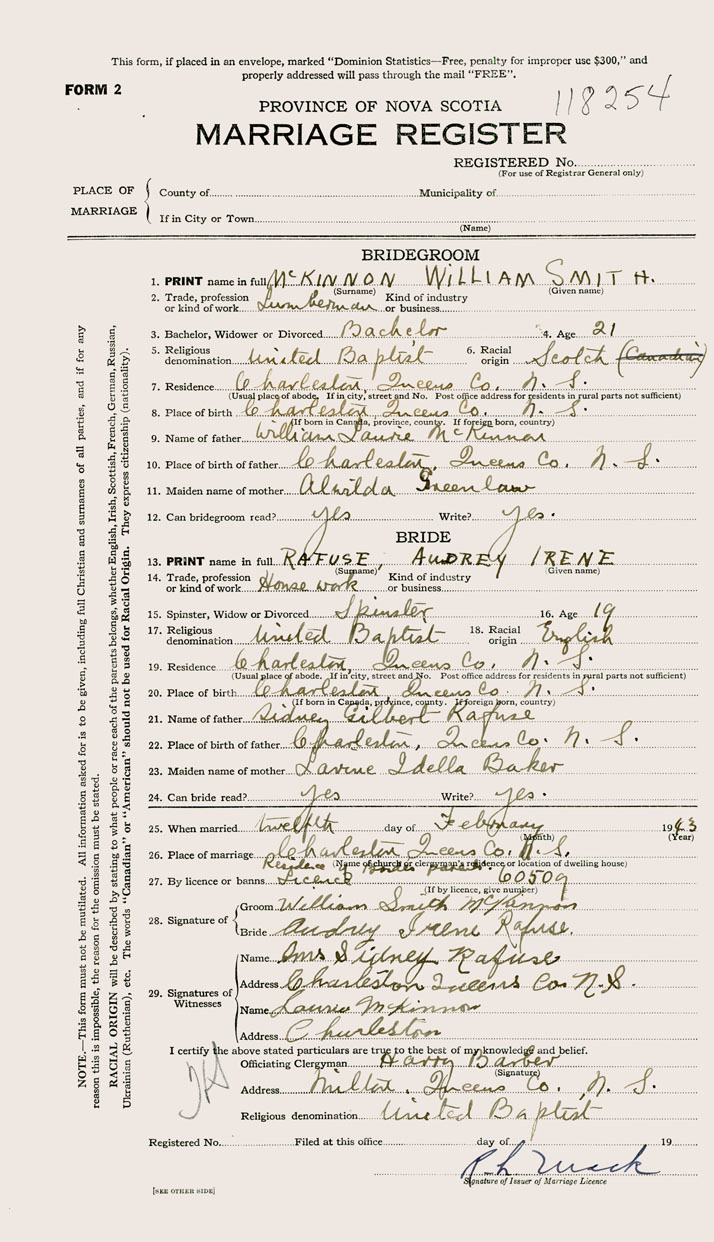 This form, if placed in an envelope, marked "Dominion Statistics—Free, penalty for improper use $300," and
properly addressed will pass through the mail "FREE".
FORM 2
118254
PROVINCE OF NOVA SCOTIA
MARRIAGE REGISTER
REGISTERED No.
(For use of Registrar General only)
PLACE OF MARRIAGE
County of Municipality of
If in City or Town
(Name)
BRIDEGROOM
1. PRINT name in full McKINNON WILLIAM SMITH.
(Surname) (Given name)
2. Trade, profession or kind of work Lumberman Kind of industry or business
3. Bachelor, Widower or Divorced Bachelor 4. Age 21
5. Religious denomination United Baptist 6. Racial origin Scotch (Canadian)
7. Residence Charleston, Queens Co. N. S.
(Usual place of abode. If in city, street and No. Post office address for residents in rural parts not sufficient)
8. Place of birth Charleston, Queens Co. N. S.
(If born in Canada, province, county. If foreign born, country)
9. Name of father William Laurie McKinnon
10. Place of birth of father Charleston, Queens Co. N. S.
11. Maiden name of mother Alwilda Greenlaw
12. Can bridegroom read? yes Write? yes.
BRIDE
13. PRINT name in full RAFUSE, AUDREY IRENE
(Surname) (Given name)
14. Trade, profession or kind of work House work Kind of industry or business
15. Spinster, Widow or Divorced Spinster 16. Age 19
17. Religious denomination United Baptist 18. Racial origin English
19. Residence Charleston, Queens Co. N. S.
(Usual place of abode. If in city, street and No. Post office address for residents in rural parts not sufficient)
20. Place of birth Charleston, Queens Co. N. S.
(If born in Canada, province, county. If foreign born, country)
21. Name of father Sidney Gilbert Rafuse
22. Place of birth of father Charleston, Queens Co. N. S.
23. Maiden name of mother Lavine Idella Baker
24. Can bride read? yes Write? yes.
25. When married twelfth day of February 1943
(Month) (Year)
26. Place of marriage Charleston Queens Co. N. S.
(Name of church or clergyman's residence, or location of dwelling house)
Residence of
27. By licence or banns Licence 60509
(If by licence, give number)
28. Signature of
Groom William Smith McKinnon
Bride Audrey Irene Rafuse.
29. Signatures of Witnesses
Name Mrs Sidney Rafuse
Address Charleston Queens Co N.S.
Name Laurie McKinnon
Address Charleston
I certify the above stated particulars are true to the best of my knowledge and belief.
Officiating Clergyman Harry Barber
(Signature)
Address Milton, Queens Co., N. S.
Religious denomination United Baptist
Registered No. Filed at this office day of 19
R. L. Mack
Signature of Issuer of Marriage Licence
[SEE OTHER SIDE]
NOTE.—This form must not be mutilated. All information asked for is to be given, including full Christian and surnames of all parties, and if for any
reason this is impossible, the reason for the omission must be stated.
RACIAL ORIGIN will be described by stating to what people or race each of the parents belongs, whether English, Irish, Scottish, French, German, Russian,
Ukrainian (Ruthenian), etc. The words "Canadian" or "American" should not be used for Racial Origin. They express citizenship (nationality).